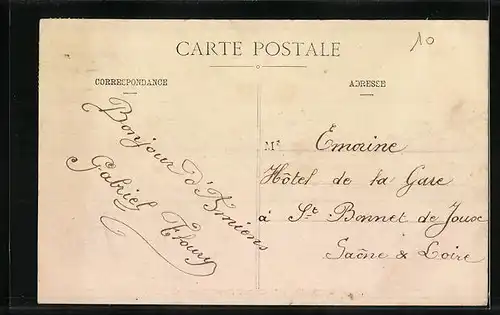 10
CARTE POSTALE
CORRESPONDANCE
Bonjour d'Amiens
Gabriel
ADRESSE
Mr Emorine
Hôtel de la Gare
à St Bonnet de Joux
Saône & Loire